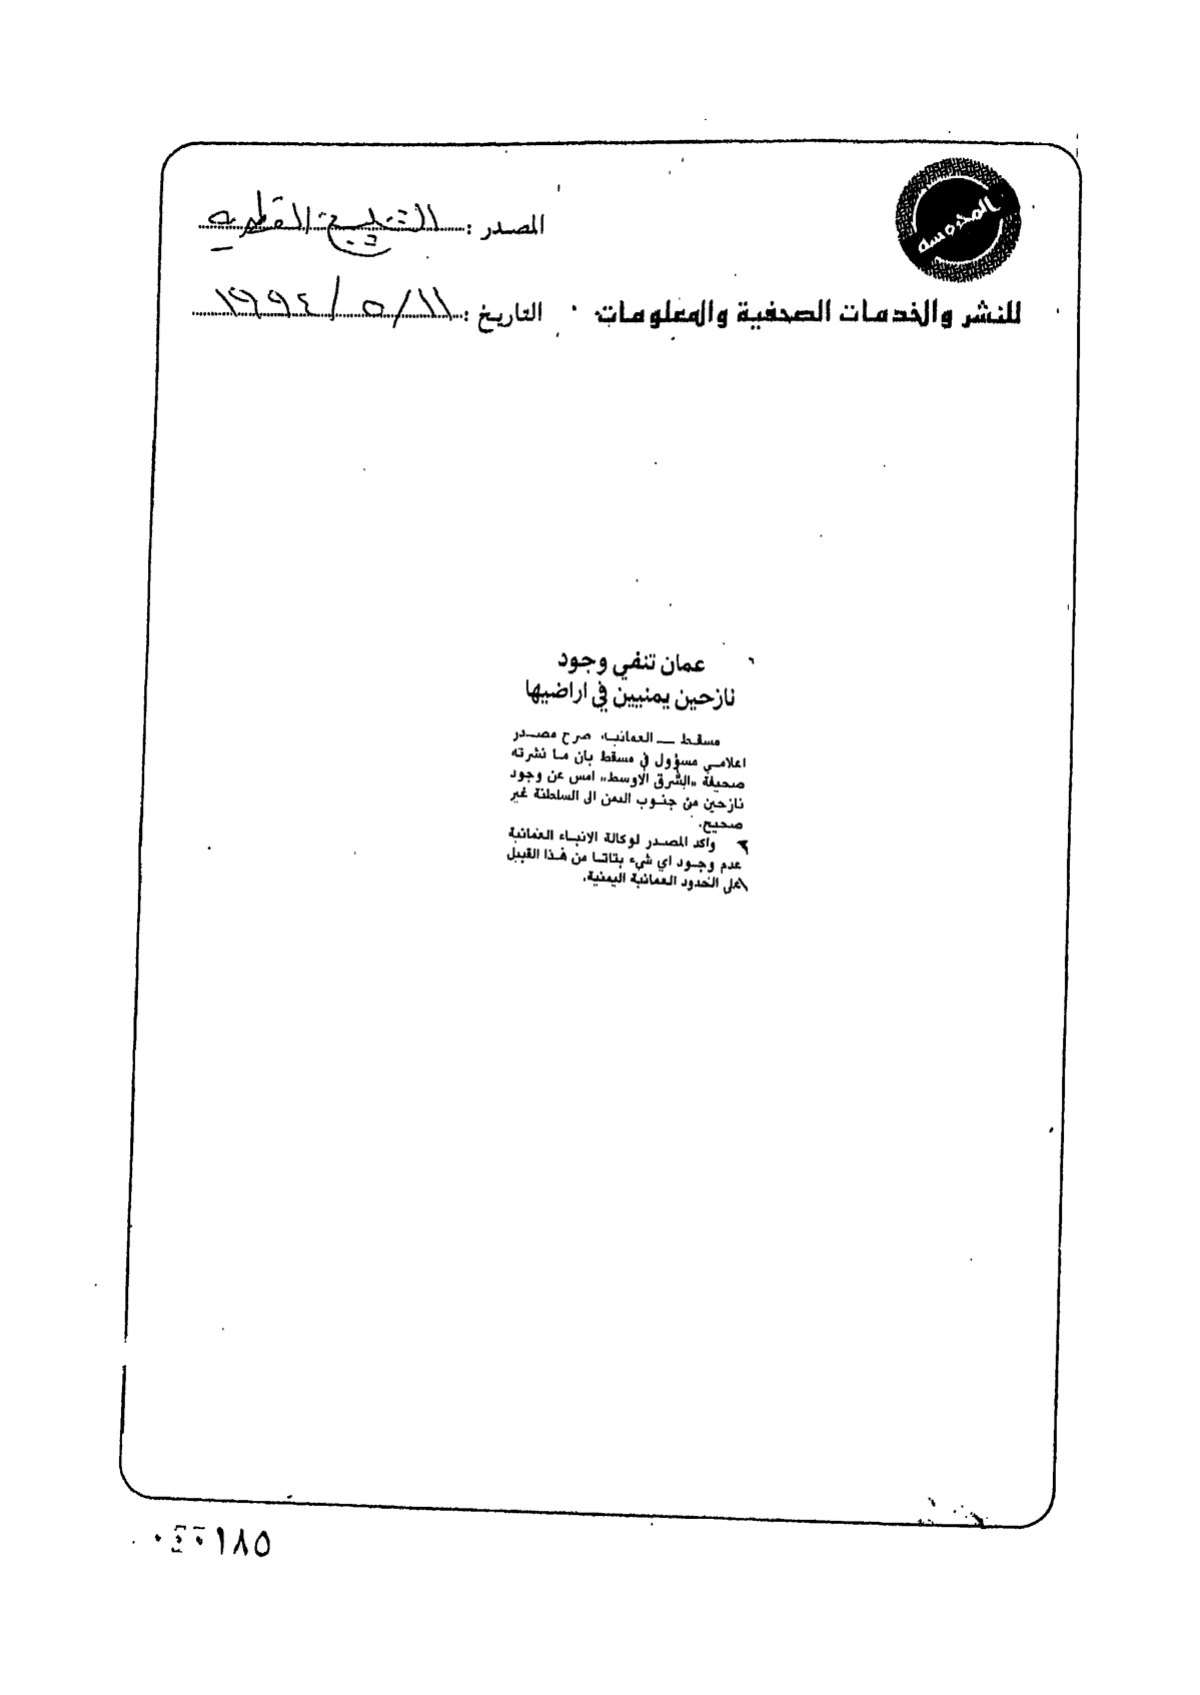 المحروسه
المصدر : الخليج القطرية
للنشر والخدمات الصحفية والمعلومات
التاريخ : ١٩٩٤/٥/١١
عمان تنفي وجود
نازحين يمنيين في اراضيها
مسقط ــ العمانية، صرح مصدر
اعلامي مسؤول في مسقط بان ما نشرته
صحيفة «الشرق الاوسط» امس عن وجود
نازحين من جنوب اليمن الى السلطنة غير
صحيح.
واكد المصدر لوكالة الانباء العمانية
عدم وجود اي شيء بتاتا من هذا القبيل
على الحدود العمانية اليمنية.
١٨٥